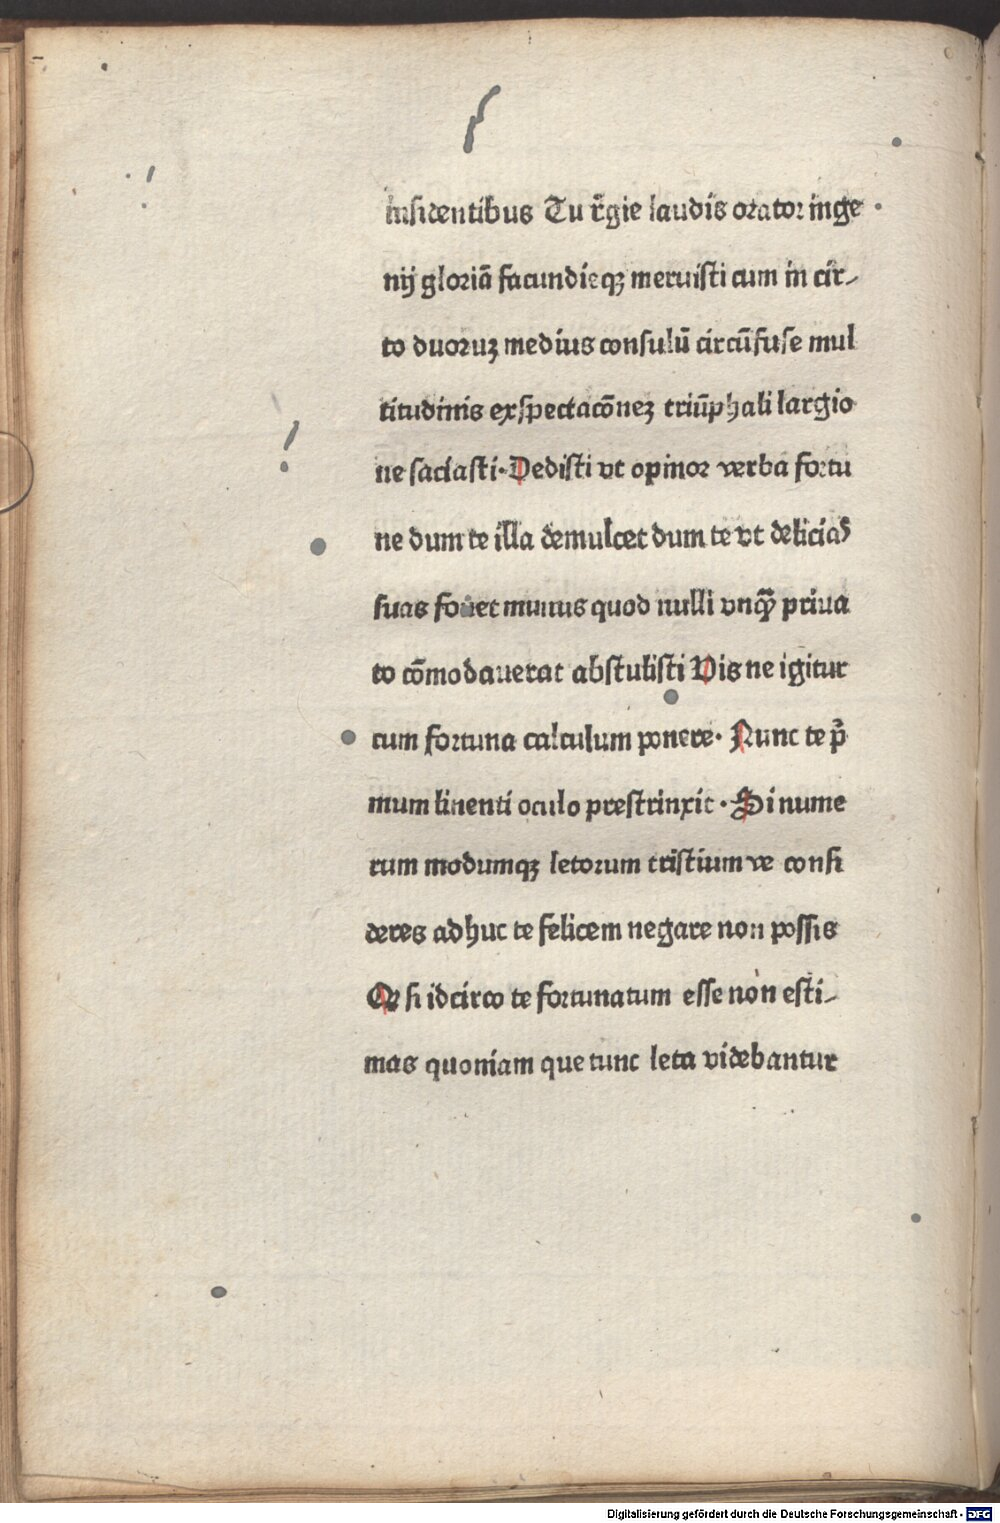 insidentibus Tu r̃gie laudis orator inge
nij gloriā facundieqꝫ meruisti cum in cir-
to duoruꝫ medius consulū circūfuse mul
titudinis exspectacōneꝫ triūphali largio
ne saciasti· Dedisti vt opinor verba fortu
ne dum te illa demulcet dum te vt delicias
suas fouet munus quod nulli vnqꝫ̄ priua
to cōmodauerat abstulisti Vis ne igitur
cum fortuna calculum ponere· Nunc te p̃
mum liuenti oculo prestrinxit · Si nume
rum modumqꝫ letorum tristium ve consi
deres adhuc te felicem negare non possis
Qꝫ si idcirco te fortunatum esse non esti-
mas quoniam que tunc leta videbantur
Digitalisierung gefördert durch die Deutsche Forschungsgemeinschaft - DFG